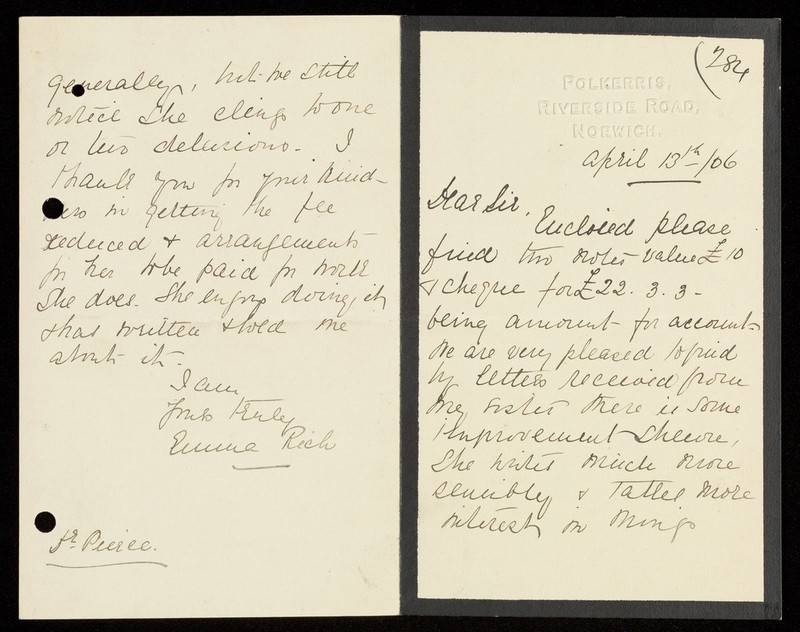 (284
POLKERRIS,
RIVERSIDE ROAD,
NORWICH.
April 13th/06
Dear Sir,
Enclosed please
find two notes value £10
& cheque for £22. 3. 3 -
being amount for account -
We are very pleased to find
by letters received from
my sister there is some
improvement
She writes much more
sensibly & takes more
interest in things
generally, but we still
notice she clings to one
or two delusions - I
thank you for your kind-
ness in getting the fee
reduced & arrangements
for her to be paid for work
she does. She enjoys doing it
& has written & told me
about it -
I am
Yours truly
Emma Rich
Dr. Pierce.